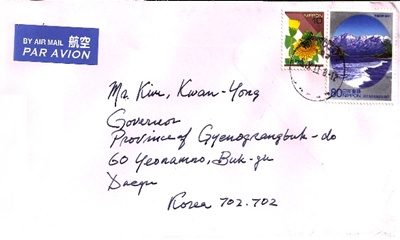 BY AIR MAIL 航空
PAR AVION
NIPPON
10
NIPPON
90
Ma. Kim, Kwan-Yong
Governor
Province of Gyenogsangbuk-do
60 Yeonamno, Buk-gu
Daegu
Korea 702.702